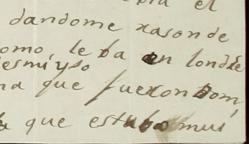 el
dandome rason de
como, le ba en londre
es mi yso
na que fueron Dom,
que estubo mui